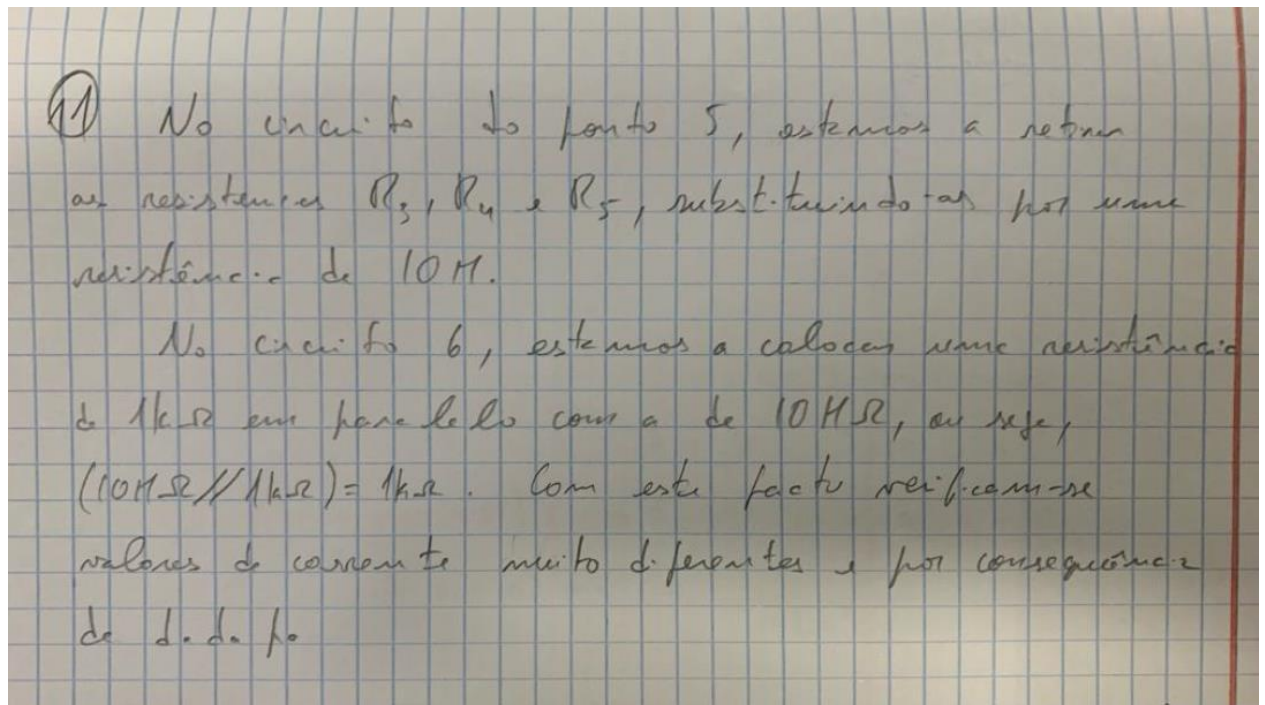 11 No circuito do ponto 5, estamos a retirar
as resistências R3, R4 e R5, substituindo-as por uma
resistência de 10M.
No circuito 6, estamos a colocar uma resistência
de 1kΩ em paralelo com a de 10MΩ, ou seja,
(10MΩ//1kΩ)=1kΩ. Com este facto verificam-se
valores de corrente muito diferentes e por consequência
de d.d.p.